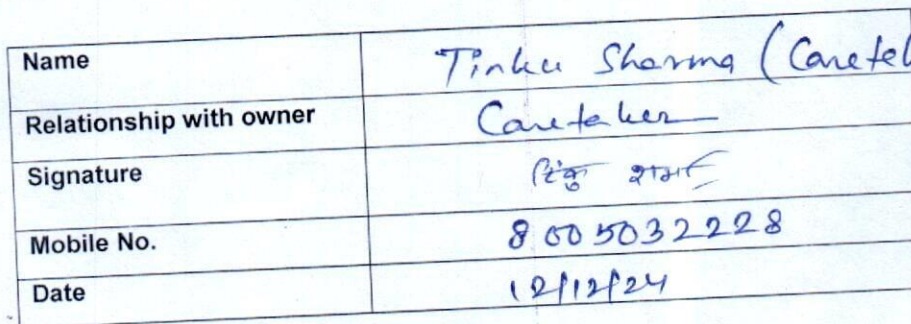 Name Tinku Sharma (Caretak
Relationship with owner Caretaker
Signature टिंकु शर्मा
Mobile No. 8005032228
Date 12/12/24